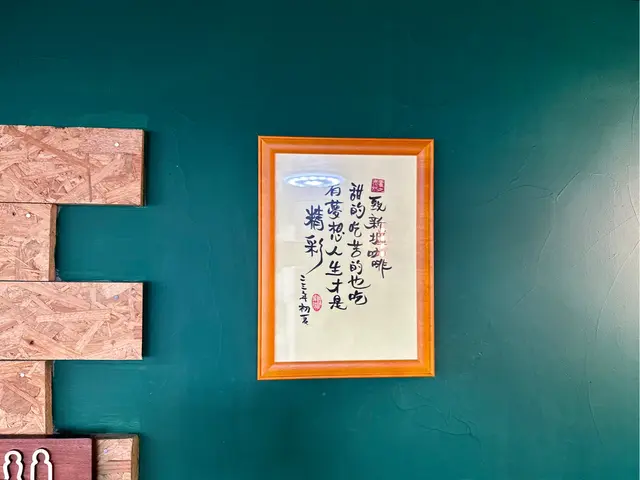 致新咖啡
甜的吃苦的也吃
有夢想人生才是
精彩
二三年初夏